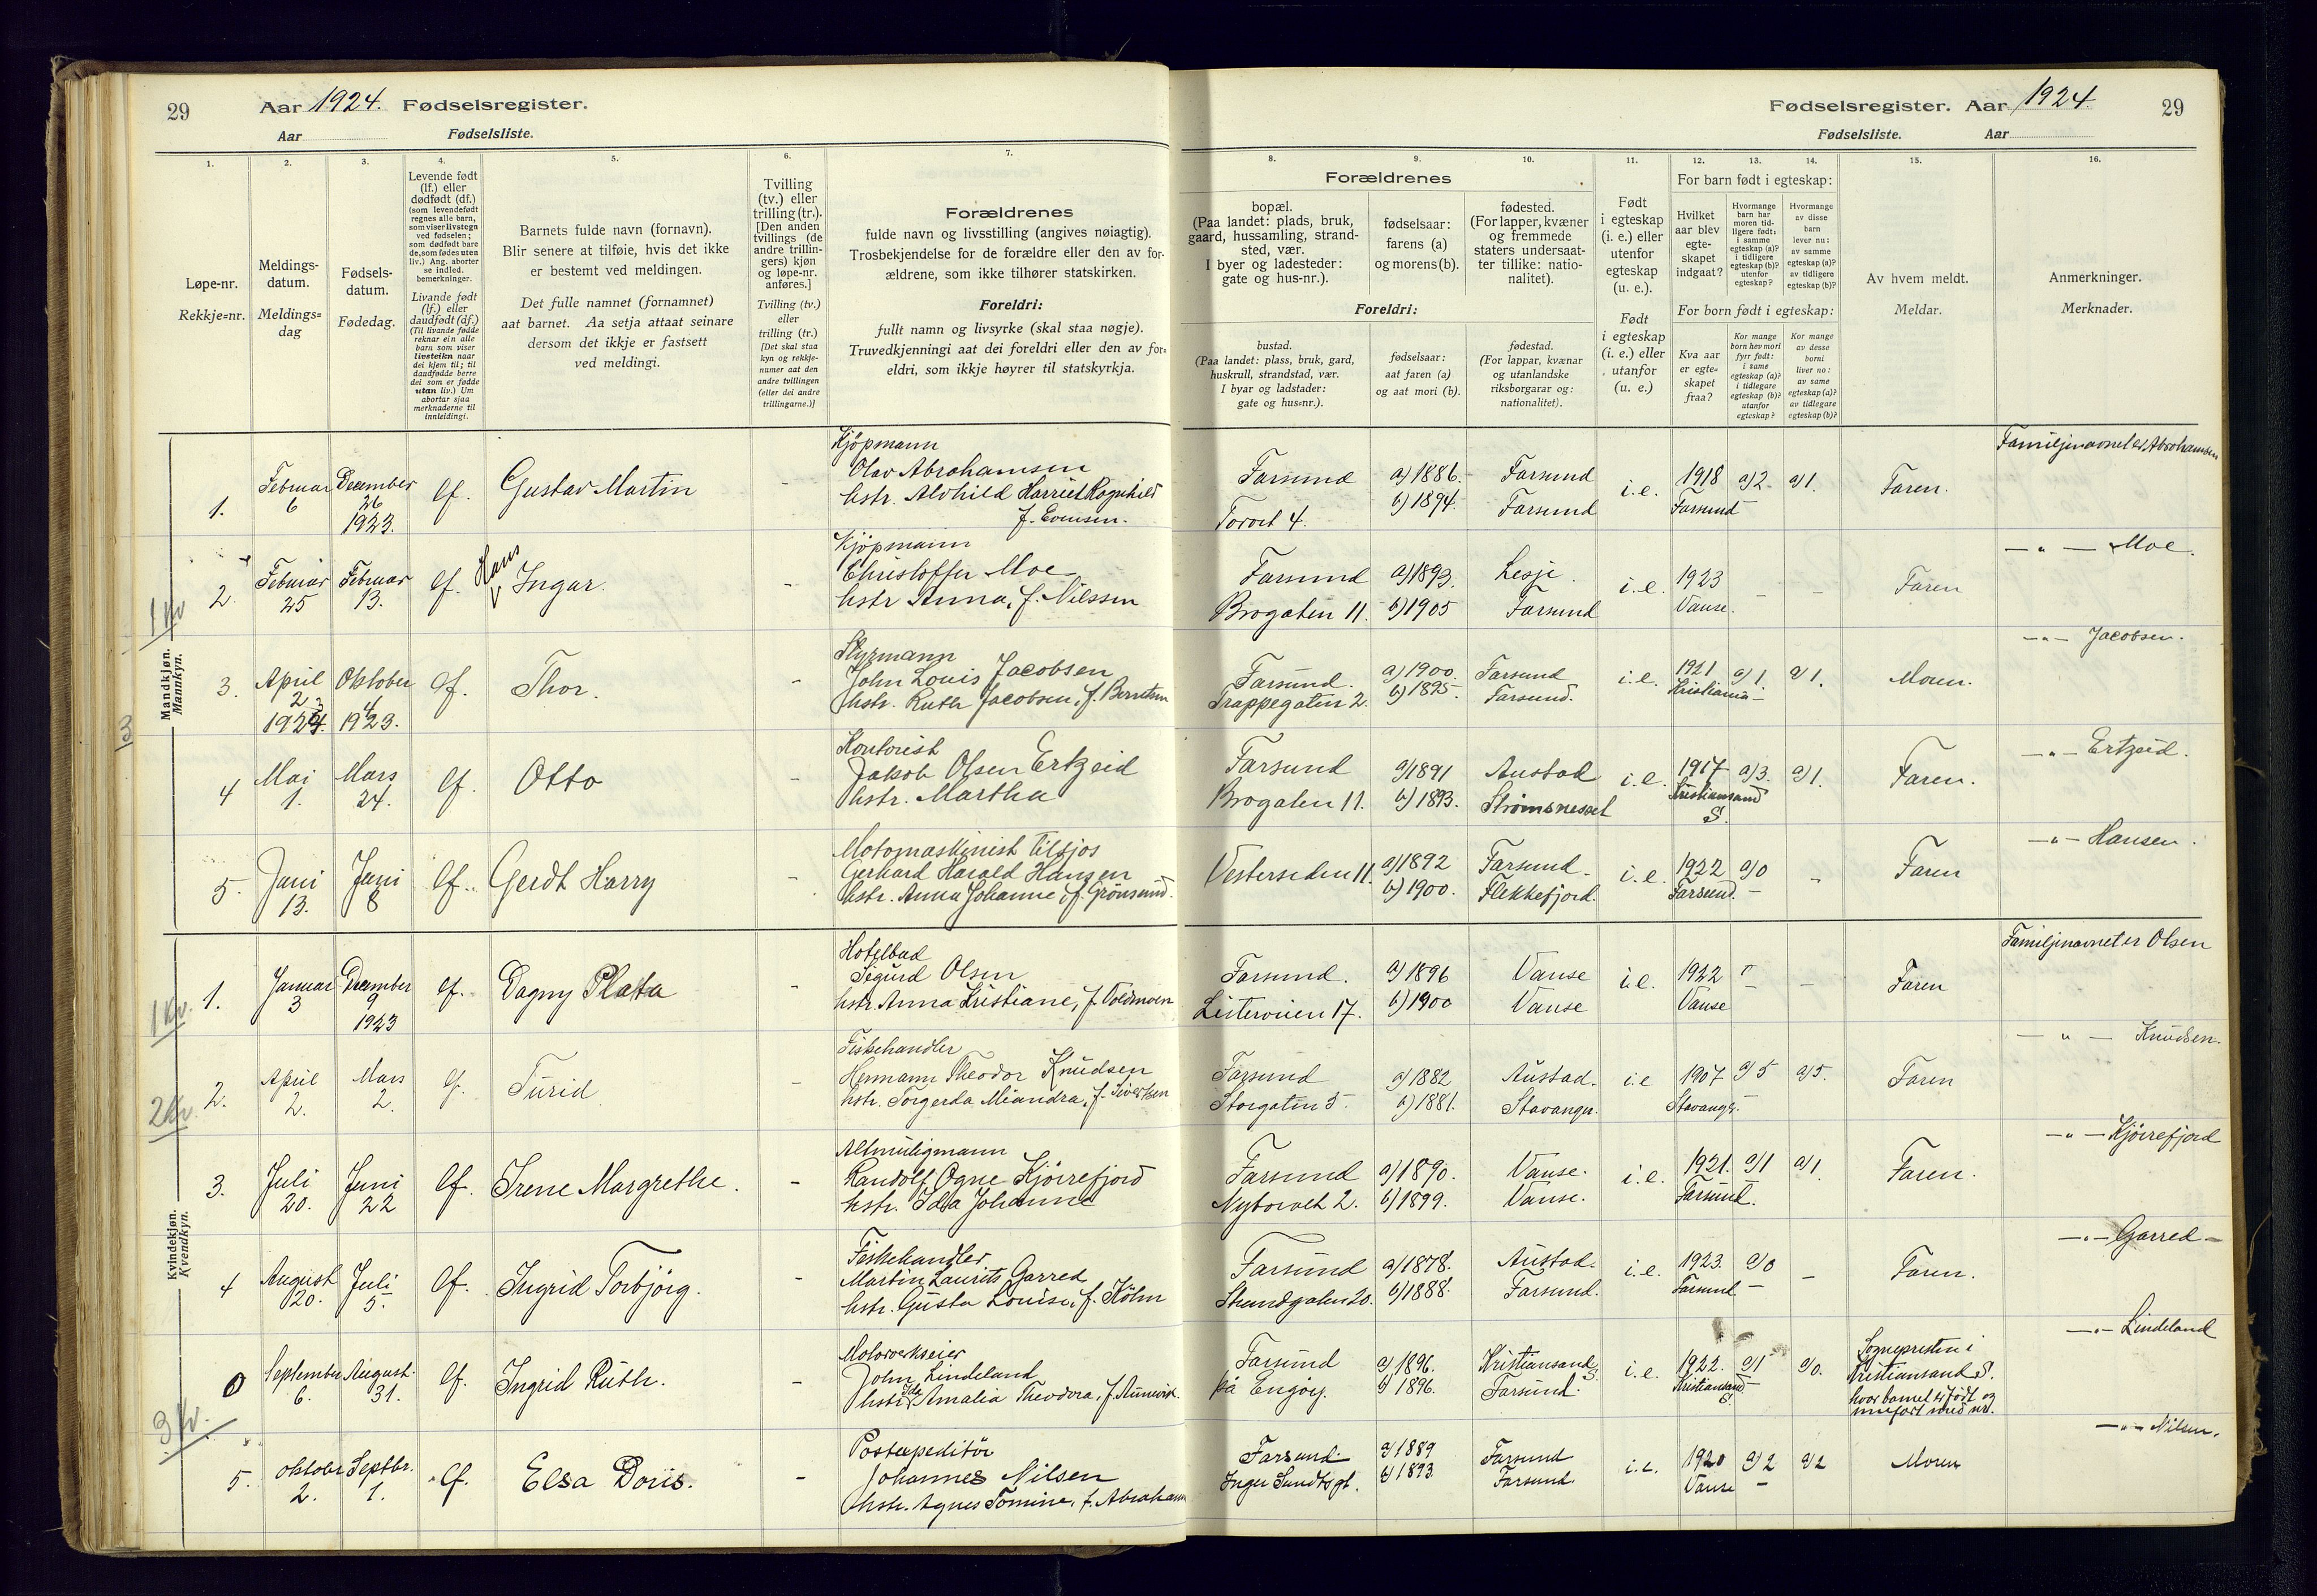 29 Aar 1924. Fødselsregister.
Aar Fødselsliste.
Fødselsregister. Aar 1924 29
Fødselsliste. Aar
1.
Løpe-nr.
Rekkje-nr.
2.
Meldings-
datum.
Meldings-
dag
3.
Fødsels-
datum.
Fødedag.
4.
Levende født
(lf.) eller
dødfødt (df.)
(som levendefødt
regnes alle barn,
som viser livstegn
ved fødselen;
som dødfødt bare
de, som fødes uten
liv.) Ang. aborter
se indled.
bemerkninger.
Livande født
(lf.) eller
daudfødt (df.)
(Til livande fødde
reknar ein alle
barn som viser
livsteikn naar
dei kjem til; til
daudfødde berre
dei som er fødde
utan liv.) Um
abortar sjaa
merknaderne til
innleidingi.
5.
Barnets fulde navn (fornavn).
Blir senere at tilføie, hvis det ikke
er bestemt ved meldingen.
Det fulle namnet (fornamnet)
aat barnet. Aa setja attaat seinare
dersom det ikkje er fastsett
ved meldingi.
6.
Tvilling
(tv.) eller
trilling (tr.).
[Den anden
tvillings (de
andre trillin-
gers) kjøn
og løpe-nr.
anføres.]
Tvilling (tv.)
eller
trilling (tr.)
[Det skal staa
kyn og rekkje-
numer aat den
andre tvillingen
(eller dei andre
trillingarne.)]
7.
Forældrenes
fulde navn og livsstilling (angives nøiagtig).
Trosbekjendelse for de forældre eller den av for-
ældrene, som ikke tilhører statskirken.
Foreldri:
fullt namn og livsyrke (skal staa nøgje).
Truvedkjenningi aat dei foreldri eller den av for-
eldri, som ikkje høyrer til statskyrkja.
8. 9. 10.
Forældrenes
bopæl.
(Paa landet: plads, bruk,
gaard, hussamling, strand-
sted, vær.
I byer og ladesteder:
gate og hus-nr.).
fødselsaar:
farens (a)
og morens (b).
fødested.
(For lapper, kvæner
og fremmede
staters undersaat-
ter tillike: natio-
nalitet).
Foreldri:
bustad.
(Paa landet: plass, bruk, gard,
huskrull, strandstad, vær.
I byar og ladstader:
gate og hus-nr.).
fødselsaar:
aat faren (a)
og aat mori (b).
fødestad.
(For lappar, kvænar
og utanlandske
riksborgarar og:
nationalitet).
11.
Født
i egteskap
(i. e.) eller
utenfor
egteskap
(u. e.).
Født
i egteskap
(i. e.) eller
utanfor
(u. e.)
12. 13. 14.
For barn født i egteskap:
Hvilket
aar blev
egte-
skapet
indgaat?
Hvormange
barn har
moren tid-
ligere født:
i samme
egteskap (a)?
i tidligere
egteskap (b)?
utenfor
egteskap?
Hvormange
av disse
barn
lever nu:
av samme
egteskap (a)?
av tidligere
egteskap (b)?
For born født i egteskap:
Kva aar
er egte-
skapet
fraa?
Kor mange
born hev mori
fyrr født:
i same
egteskap (a)?
i tidlegare
egteskap (b)?
utanfor
egteskap?
Kor mange
av desse
borni
liver no:
av same
egteskap (a)?
av tidlegare
egteskap (b)?
15.
Av hvem meldt.
Meldar.
16.
Anmerkninger.
Merknader.
Mandkjøn.
Mannkyn.
1. Februar 6 December 26 1923. lf. Gustav Martin -
Kjøpmann
Olav Abrahamsen
hstr. Alvhild Harriet Ragnhild
f. Evensen.
Farsund Torvet 4. a) 1886. b) 1894. Farsund Farsund i.e. 1918 Farsund a) 2. a) 1. Faren. Familjenavnet er Abrahamsen
2. Februar 25 Februar 13. lf. Hans Ingar. -
Kjøpmann
Christoffer Moe
hstr Anna, f. Nilssen
Farsund Brogaten 11. a) 1893. b) 1905 Lesje. Farsund i.e. 1923 Vanse. - - Faren —"— Moe.
1 kv
3. April 23 1924. Oktober 4 1923. lf. Thor. -
Styrmann
John Louis Jacobsen
hstr. Ruth Jacobsen, f. Berntsen
Farsund. Trappegaten 2. a) 1900. b) 1895. Farsund Farsund. i.e. 1921 Kristiania a) 1. a) 1. Moren. —"— Jacobsen.
3
4 Mai 1. Mars 24. lf. Otto -
Kontorist
Jakob Olsen Ertzeid
hstr. Martha
Farsund Brogaten 11. a) 1891 b) 1893. Austad Strømsnesset i.e. 1917 Kristiansand S. a) 3. a) 1. Faren. —"— Ertzeid.
5. Juni 13. Juni 8 lf. Gerdt Harry -
Motormaskinist tilsjøs
Gerhard Harald Hansen
hstr. Anna Johanne, f. Grønsund.
Vestersiden 11. a) 1892 b) 1900. Farsund. Flekkefjord. i.e. 1922 Farsund. a) 0 - Faren —"— Hansen.
Kvindekjøn.
Kvendkyn.
1 kv.
1. Januar 3 December 9 1923 lf. Dagny Plata -
Sigurd Olsen
hstr. Anna Kristiane, f. Voldmoen
Farsund. Listerveien 17. a) 1896 b) 1900 Vanse Vanse i.e. 1922 Vanse - - Faren Familjenavnet er Olsen
2 kv.
2. April 2. Mars 2. lf. Turid -
Fiskehandler
Hermann Theodor Knudsen
hstr. Torgerda Meandra, f. Sivertsen
Farsund Storgaten 5. a) 1882 b) 1881. Austad. Stavanger. i.e 1907 Stavanger. a) 5 a) 5. Faren —"— Knudsen.
3. Juli 20. Juni 22 lf. Irene Margrethe. -
Altmuligmann
Randolf Ogne Kjørrefjord
hstr. Ida Johanne
Farsund Nytorvet 2. a) 1890. b) 1899. Vanse. Vanse. i.e. 1921. Farsund. a) 1 a) 1. Faren. —"— Kjørrefjord
4 August 20. Juli 5. lf. Ingrid Torbjørg. -
Fiskehandler
Martin Laurits Garred
hstr. Gusta Louise, f. Köhn
Farsund Strandgaten 20. a) 1878. b) 1888. Austad. Farsund. i.e. 1923. Farsund a) 0 - Faren. —"— Garred
0 September 6. August 31. lf. Ingrid Ruth. -
Motorverkseier
John Lindeland
hstr. Ida Amalia Theodora, f.
Farsund på Engøy. a) 1896. b) 1896. Kristiansand S. Farsund. i.e. 1922. Kristiansand S. a) 1 a) 0. Sognepresten i Kristiansand S. hvor barnet er født og innført med nr. —"— Lindeland
3 kv.
5. Oktober 2. Septbr. 1. lf. Elsa Doris. -
Postexpeditør
Johannes Nilsen
hstr. Agnes Tomine, f.
Farsund Inger Sundts gt. a) 1889 b) 1893 Farsund Farsund i.e. 1920 Vanse a) 2 a) 2 Moren —"— Nilsen.